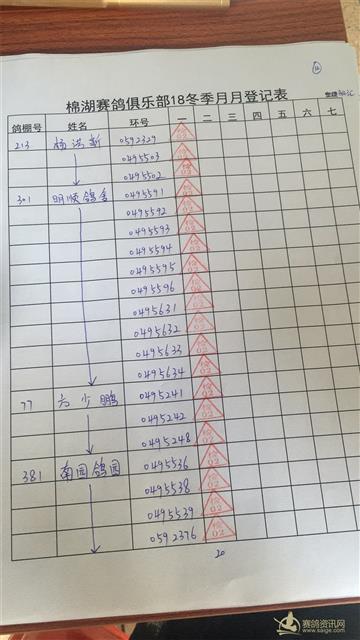 棉湖赛鸽俱乐部18冬季月月登记表
鸽棚号 姓名 环号 一 二 三 四 五 六 七
213 杨洪新 0592329
0495503
0495502
301 明顺鸽舍 0495591
0495592
0495593
0495594
0495595
0495596
0495631
0495632
0495633
0495634
77 方少鹏 0495241
0495242
0495248
381 南园鸽园 0495536
0495538
0495539
0592376
20
赛鸽资讯网
www.saige.com